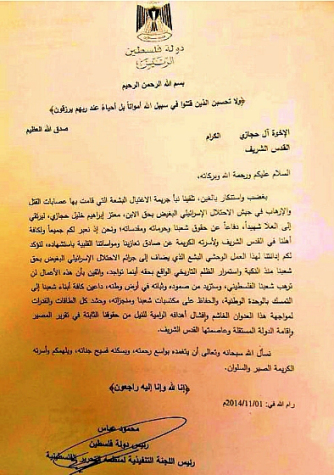 دولة فلسطين
الرئيس
بسم الله الرحمن الرحيم
﴿ولا تحسبن الذين قتلوا في سبيل الله أمواتاً بل أحياءً عند ربهم يرزقون﴾
صدق الله العظيم
الإخوة آل حجازي الكرام
القدس الشريف
السلام عليكم ورحمة الله وبركاته،
بغضب واستنكار بالغين، تلقينا نبأ جريمة الاغتيال البشعة التي قامت بها عصابات القتل
والإرهاب في جيش الاحتلال الإسرائيلي البغيض بحق الابن، معتز إبراهيم خليل حجازي، ليرتقي
إلى العلا شهيداً، دفاعاً عن حقوق شعبنا وحرماته ومقدساته؛ ونحن إذ نعبر لكم جميعاً ولكافة
أهلنا في القدس الشريف ولأسرته الكريمة عن صادق تعازينا ومواساتنا القلبية باستشهاده، لنؤكد
لكم إدانتنا لهذا العمل الوحشي البشع الذي يضاف إلى جرائم الاحتلال الإسرائيلي البغيض بحق
شعبنا منذ النكبة واستمرار الظلم التاريخي الواقع بحقه أينما تواجد، واثقين بأن هذه الأعمال لن
ترهب شعبنا الفلسطيني، وستزيد من صموده وثباته في أرض وطنه، داعين كافة أبناء شعبنا إلى
التمسك بالوحدة الوطنية، والحفاظ على مكتسبات شعبنا ومنجزاته، وحشد كل الطاقات والقدرات
لمواجهة هذا العدوان الغاشم وإفشال أهدافه الرامية للنيل من حقوقنا الثابتة في تقرير المصير
وإقامة الدولة المستقلة وعاصمتها القدس الشريف.
نسأل الله سبحانه وتعالى أن يتغمده بواسع رحمته، ويسكنه فسيح جناته، ويلهمكم وأسرته
الكريمة الصبر والسلوان.
﴿إنا لله وإنا إليه راجعون﴾
رام الله في: 2014/11/01م
محمود عباس
رئيس دولة فلسطين
رئيس اللجنة التنفيذية لمنظمة التحرير الفلسطينية